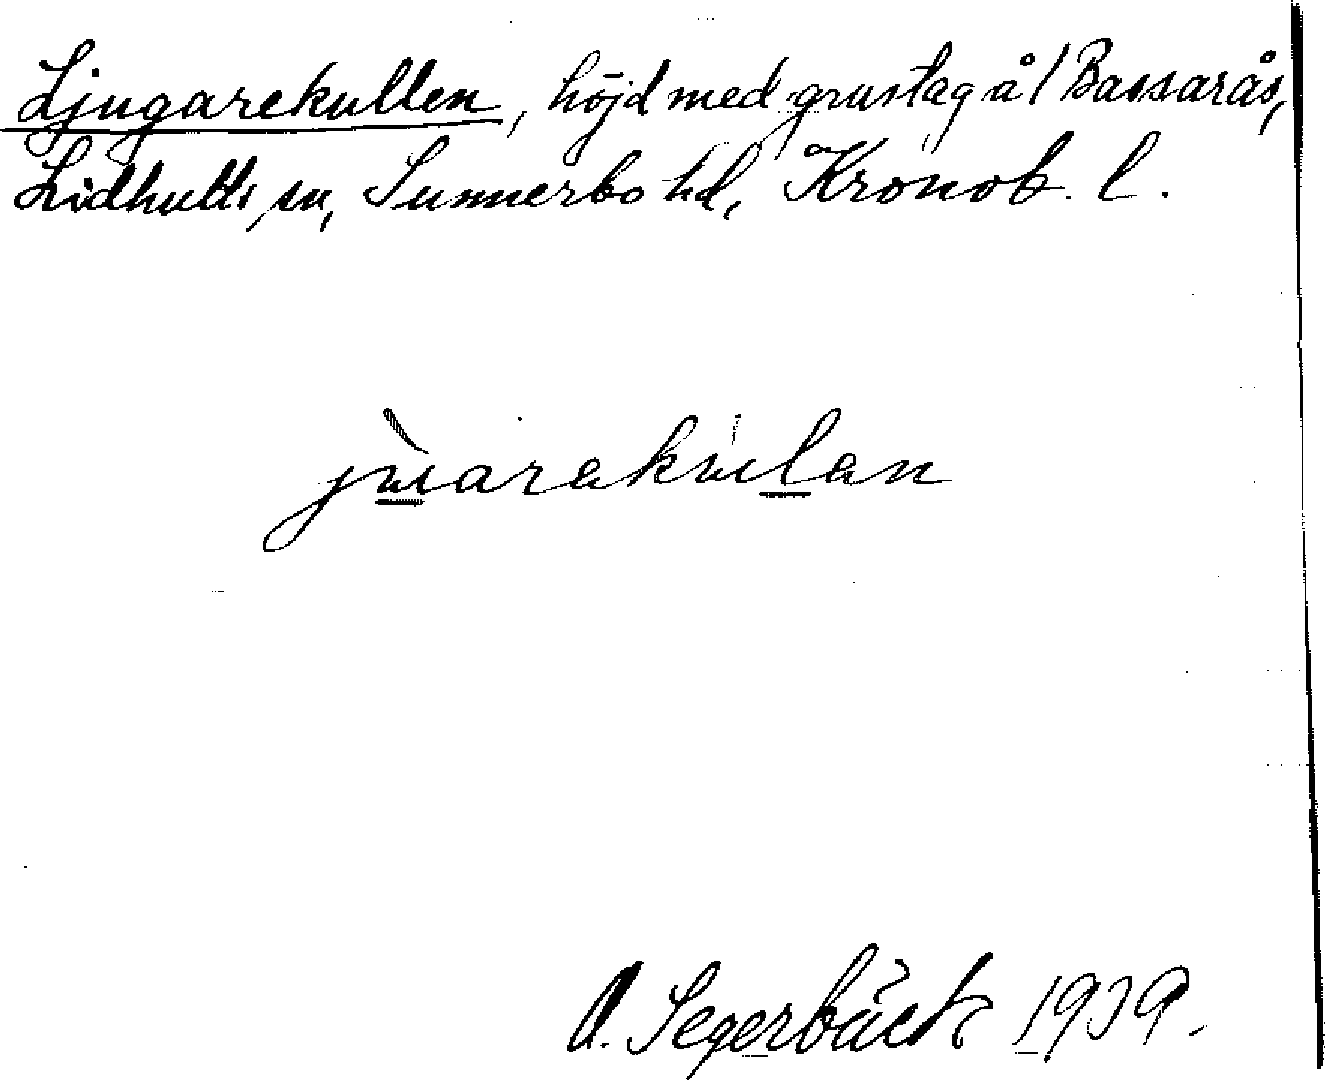 Ljugarekullen, höjd med grustag å 1 Bassarås,
Lidhults sn, Sunnerbo hd, Kronob. l.
jùarekulan
A. Segerbäck 1939.